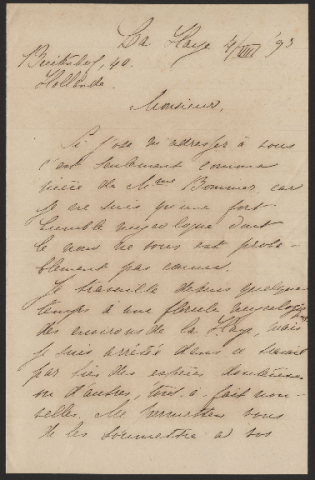 La Haye 4/VIII '93
Buitenhof, 40.
Hollande.
Monsieur,
Si j'ose m'adresser à vous
c'est seulement comme
nièce de Mme Bommer, car
je ne suis qu'une fort
humble mycologue dont
le nom ne vous est proba-
blement pas connu.
Je travaille depuis quelque
temps à une florule mycologique
des environs de la Haye, mais
je suis arrêtée dans ce travail
par des espèces douteuses
ou d'autres, tout-à-fait nou-
velles. Me permettez vous
de les soumettre à vos